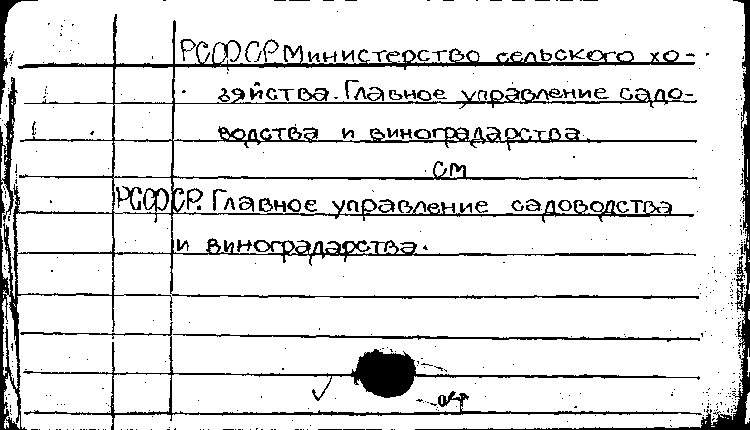 РСФСР. Министерство сельского хо-
зяйства. Главное управление садо-
водства и виноградарства.
см
РСФСР. Главное управление садоводства
и виноградарства.